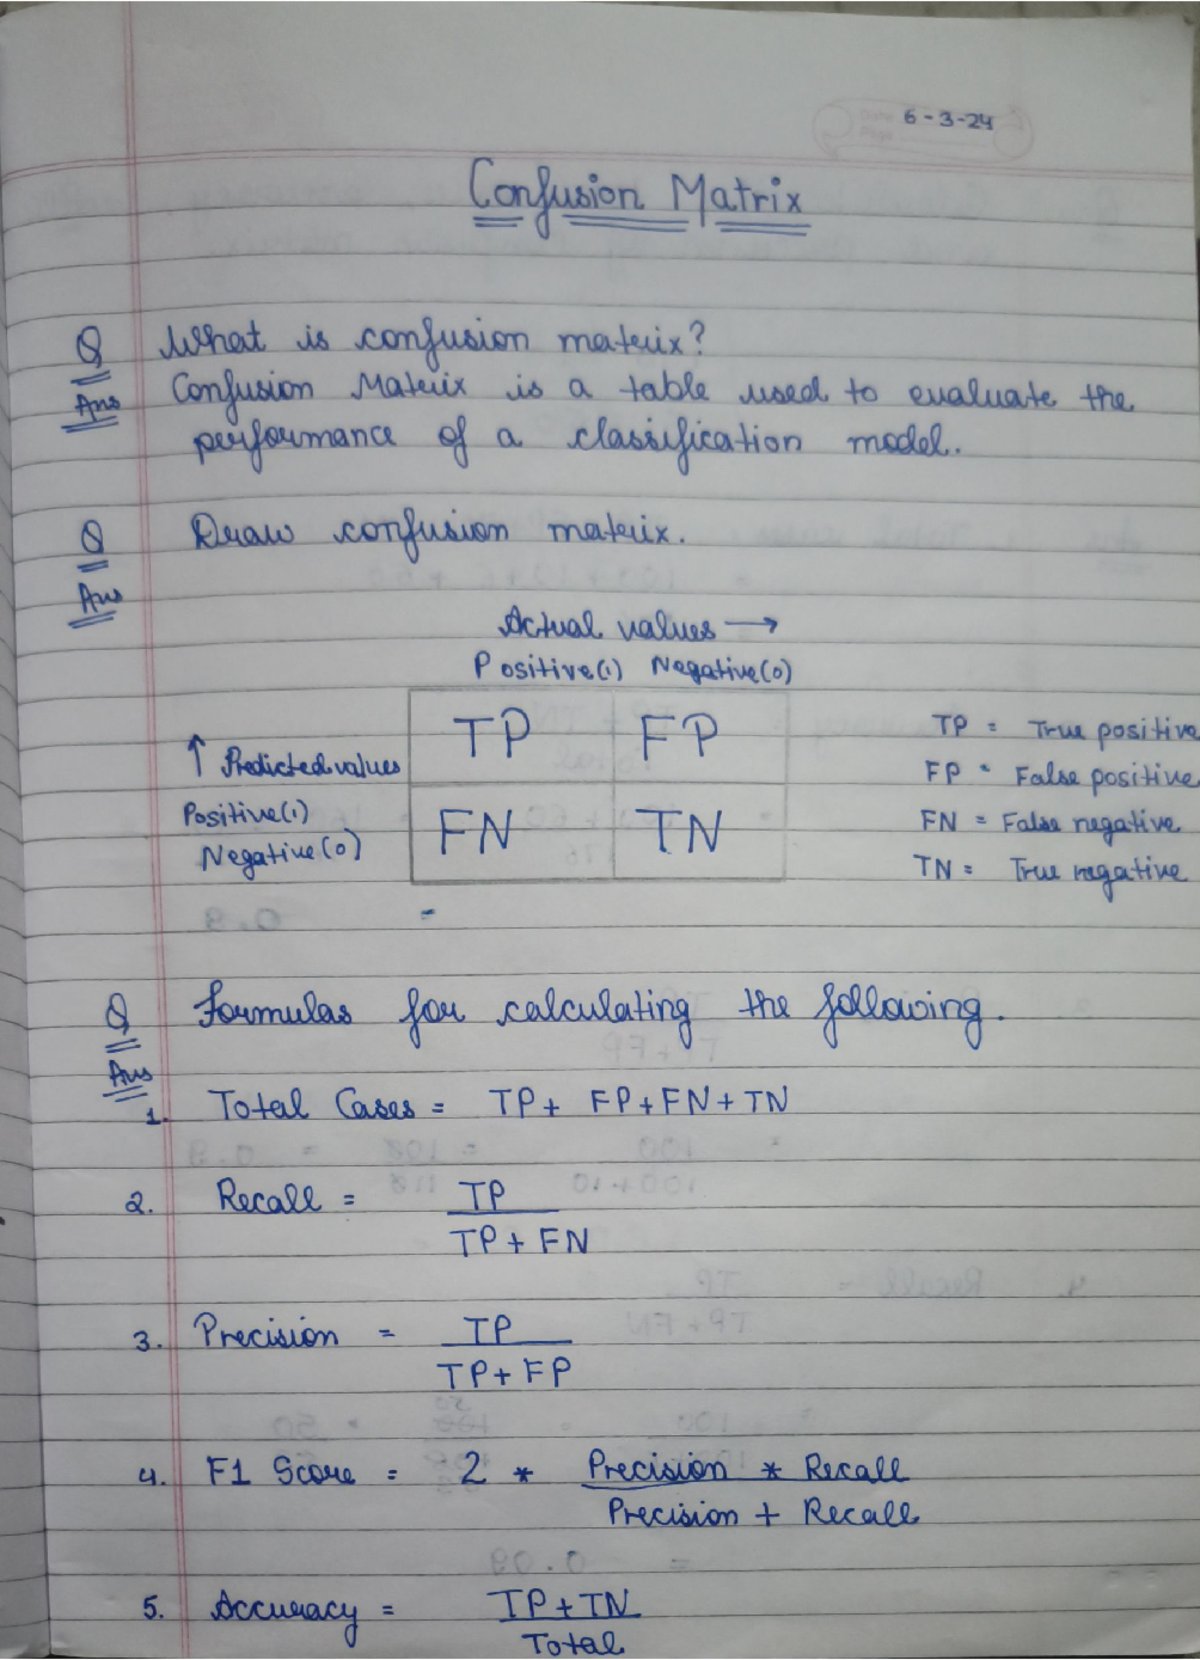 Date 6-3-24
Page
Confusion Matrix
Q What is confusion matrix?
Ans Confusion Matrix is a table used to evaluate the
performance of a classification model.
Q Draw confusion matrix.
Ans
Actual values →
Positive(1) Negative(0)
TP FP
↑ Predicted values
Positive(1)
Negative(0)
FN TN
TP = True positive
FP = False positive
FN = False negative
TN = True negative
Q Formulas for calculating the following.
Ans
1. Total Cases = TP + FP + FN + TN
2. Recall = TP
TP + FN
3. Precision = TP
TP + FP
4. F1 Score = 2 * Precision * Recall
Precision + Recall
5. Accuracy = TP + TN
Total